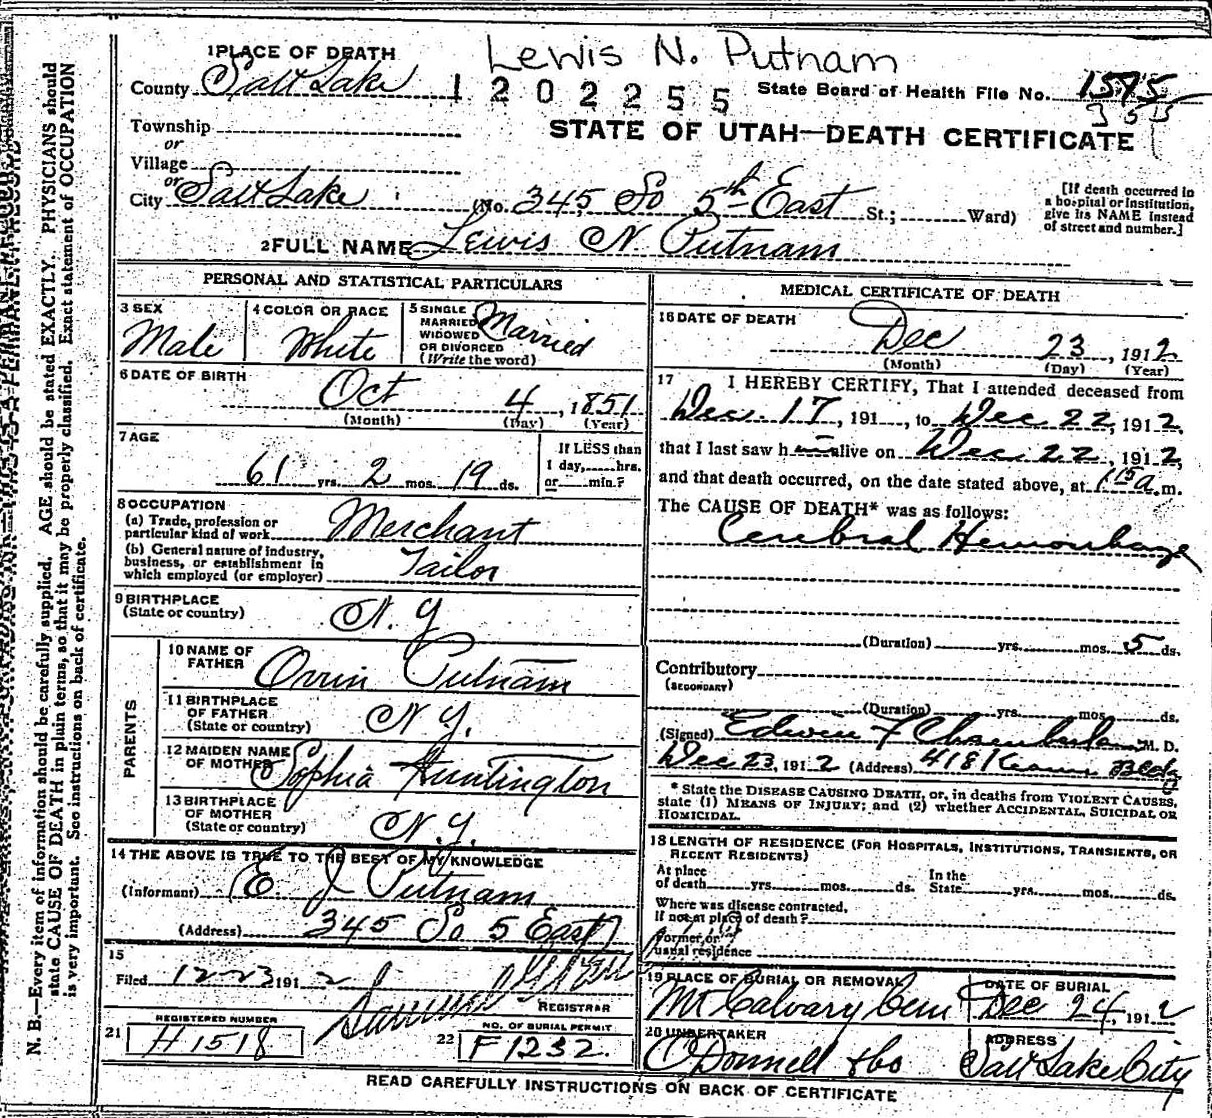 Lewis N. Putnam
1 PLACE OF DEATH
County Salt Lake 1 2 0 2 2 5 5 State Board of Health File No. 1575
355
Township
or
STATE OF UTAH—DEATH CERTIFICATE
Village
or
City Salt Lake (No. 345 So 5th East St.; Ward)
[If death occurred in
a hospital or institution,
give its NAME instead
of street and number.]
2 FULL NAME Lewis N. Putnam
PERSONAL AND STATISTICAL PARTICULARS
3 SEX
Male
4 COLOR OR RACE
White
5 SINGLE
MARRIED
WIDOWED
OR DIVORCED
(Write the word)
Married
6 DATE OF BIRTH
Oct 4, 1851
(Month) (Day) (Year)
7 AGE
61 yrs. 2 mos. 19 ds.
If LESS than
1 day, hrs.
or min.?
8 OCCUPATION
(a) Trade, profession or
particular kind of work Merchant
(b) General nature of industry,
business, or establishment in
which employed (or employer) Tailor
9 BIRTHPLACE
(State or country) N. Y
PARENTS
10 NAME OF
FATHER Orrin Putnam
11 BIRTHPLACE
OF FATHER
(State or country) N. Y.
12 MAIDEN NAME
OF MOTHER Sophia Huntington
13 BIRTHPLACE
OF MOTHER
(State or country) N. Y.
14 THE ABOVE IS TRUE TO THE BEST OF MY KNOWLEDGE
(Informant) E. J Putnam
(Address) 345 So 5 East
15
Filed 12-23 1912
REGISTRAR
21 REGISTERED NUMBER
H 1518
22 NO. OF BURIAL PERMIT
F 1232.
MEDICAL CERTIFICATE OF DEATH
16 DATE OF DEATH
Dec 23, 1912
(Month) (Day) (Year)
17 I HEREBY CERTIFY, That I attended deceased from
Dec. 17, 191 , to Dec 22, 1912,
that I last saw h alive on Dec 22, 1912,
and that death occurred, on the date stated above, at 1 15 a m.
The CAUSE OF DEATH* was as follows:
Cerebral Hemorrhage
(Duration) yrs. mos. 5 ds.
Contributory
(SECONDARY)
(Duration) yrs. mos. ds.
(Signed) Edwin F Chamberlain M. D.
Dec 23, 1912 (Address) 418 Kearns Bldg
* State the DISEASE CAUSING DEATH, or, in deaths from VIOLENT CAUSES,
state (1) MEANS OF INJURY; and (2) whether ACCIDENTAL, SUICIDAL OR
HOMICIDAL.
18 LENGTH OF RESIDENCE (FOR HOSPITALS, INSTITUTIONS, TRANSIENTS, OR
RECENT RESIDENTS)
At place
of death yrs. mos. ds. In the
State yrs. mos. ds.
Where was disease contracted,
If not at place of death?
Former or
usual residence
19 PLACE OF BURIAL OR REMOVAL
Mt Calvary Cem
DATE OF BURIAL
Dec 24, 1912
20 UNDERTAKER
O'Donnell & Co
ADDRESS
Salt Lake City
READ CAREFULLY INSTRUCTIONS ON BACK OF CERTIFICATE
N. B.—Every item of information should be carefully supplied. AGE should be stated EXACTLY. PHYSICIANS should
state CAUSE OF DEATH in plain terms, so that it may be properly classified. Exact statement of OCCUPATION
is very important. See instructions on back of certificate.